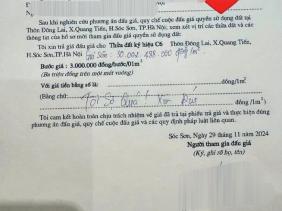 Sau khi nghiên cứu phương án đấu giá, quy chế cuộc đấu giá quyền sử dụng đất tại
Thôn Đông Lai, X.Quang Tiến, H.Sóc Sơn, TP.Hà Nội, xem xét vị trí các thửa đất và các
thông tin của hồ sơ mời tham gia đấu giá quyền sử dụng đất:
Tôi xin trả giá đấu giá cho Thửa đất ký hiệu C6 Thôn Đông Lai, X.Quang Tiến,
H.Sóc Sơn,TP.Hà Nội
Bước giá : 3.000.000 đồng/bước/01m²
(Ba triệu đồng trên một mét vuông)
Với giá tiền bằng số là: đồng/1m²
(Bằng chữ: Tôi Số Quá Xin Rút đồng /1m²)
Tôi cam kết hoàn toàn chịu trách nhiệm về giá đã trả tại phiếu trả giá và thực hiện đúng
phương án đấu giá, quy chế cuộc đấu giá và các quy định pháp luật liên quan.
Sóc Sơn, Ngày 29 tháng 11 năm 2024
Người tham gia đấu giá
(Ký, ghi rõ họ, tên)